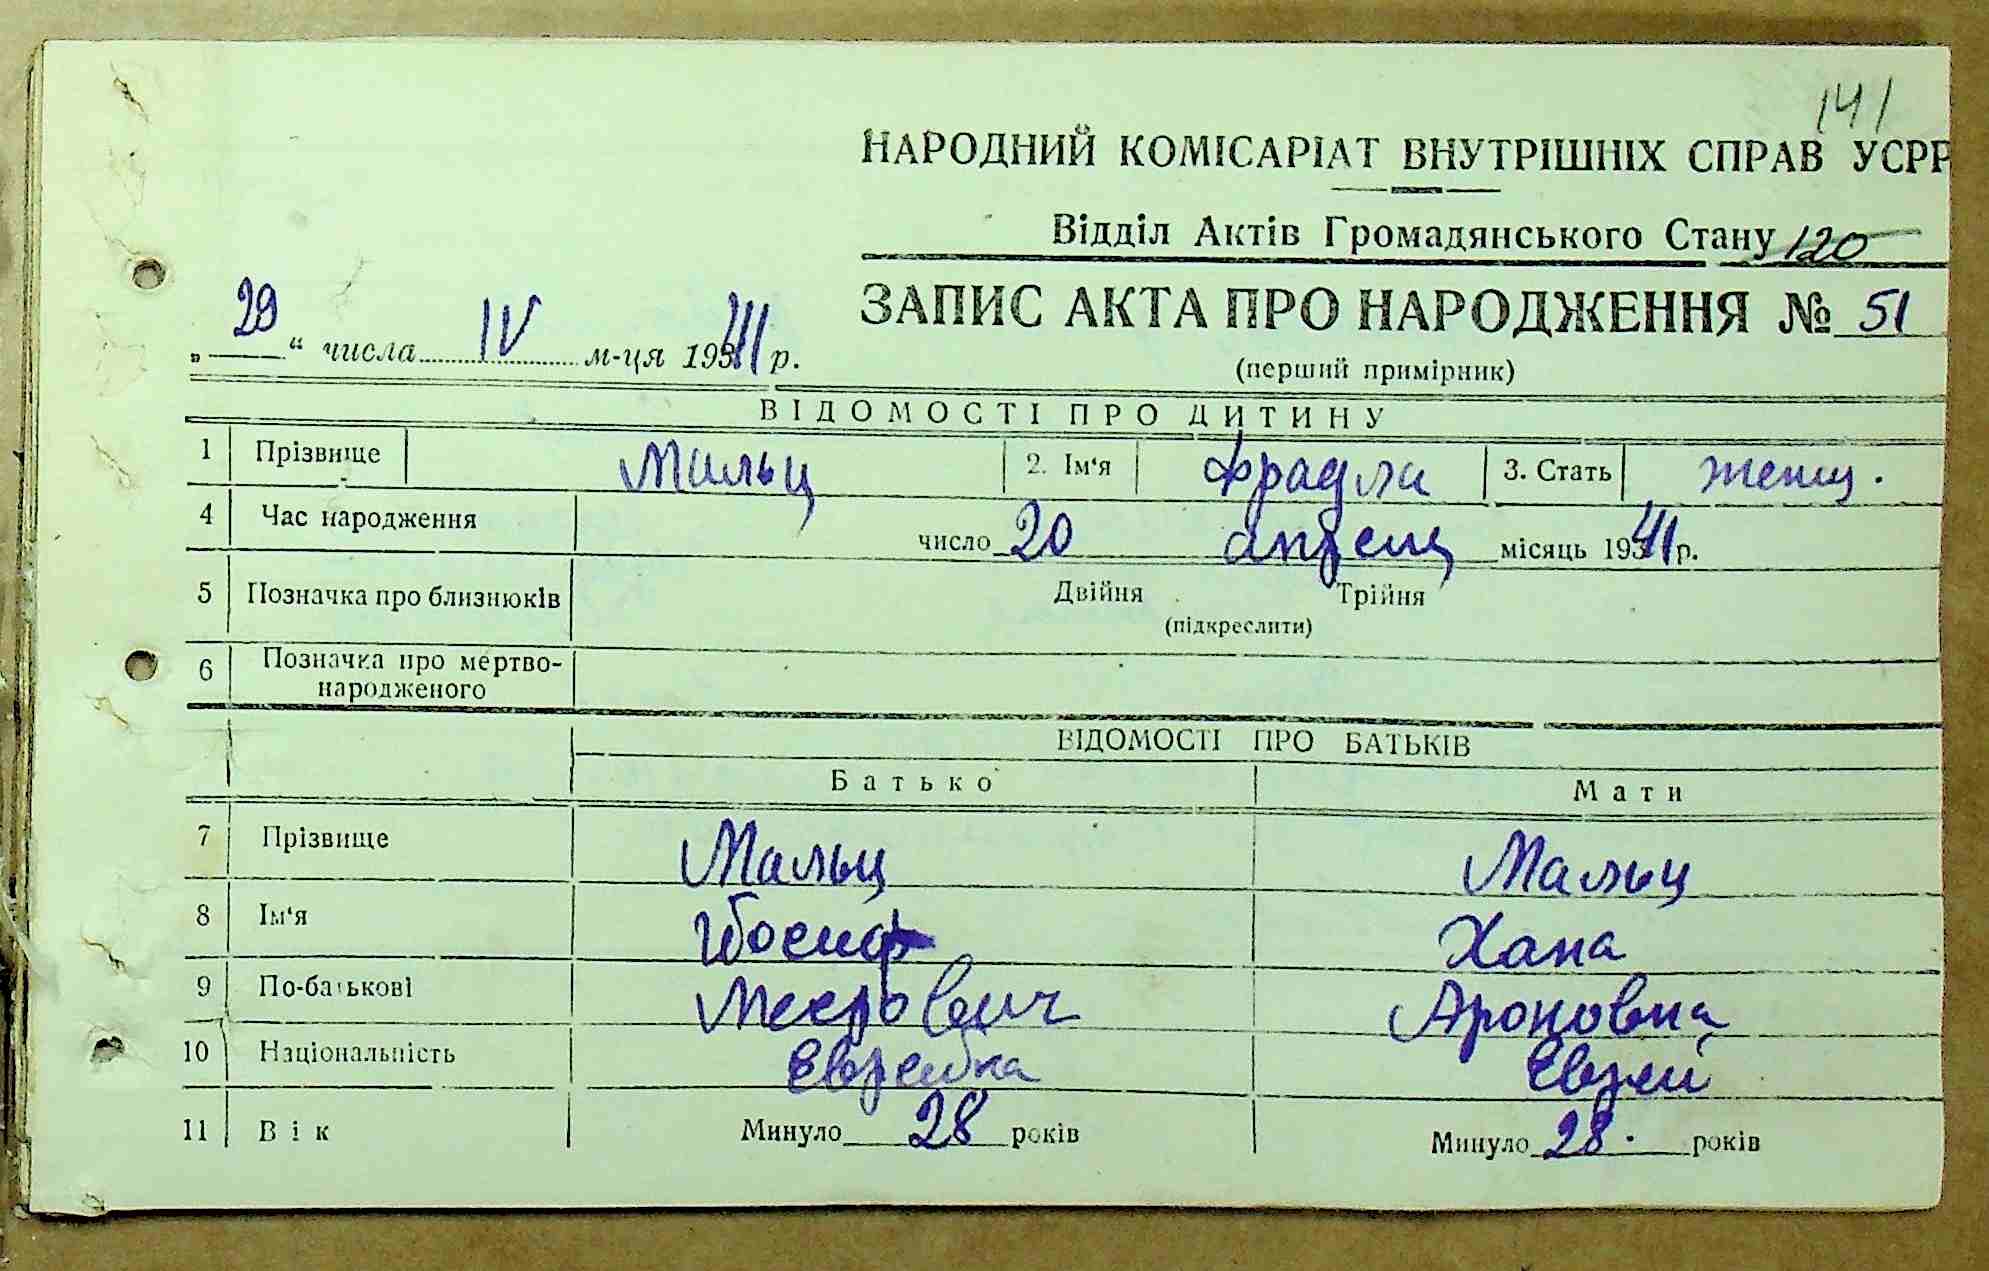 141
НАРОДНИЙ КОМІСАРІАТ ВНУТРІШНІХ СПРАВ УСРР
Відділ Актів Громадянського Стану 120
ЗАПИС АКТА ПРО НАРОДЖЕННЯ № 51
„29“ числа IV м-ця 1941 р.
(перший примірник)
ВІДОМОСТІ ПРО ДИТИНУ
1 Прізвище Мальц 2. Ім‘я Фрадля 3. Стать женщ.
4 Час народження число 20 апрель місяць 1941 р.
5 Позначка про близнюків Двійня Трійня
(підкреслити)
6 Позначка про мертво-
народженого
ВІДОМОСТІ ПРО БАТЬКІВ
Батько Мати
7 Прізвище Мальц Мальц
8 Ім‘я Иосиф Хана
9 По-батькові Меерович Ароновна
10 Національність Еврейка Еврей
11 Вік Минуло 28 років Минуло 28. років